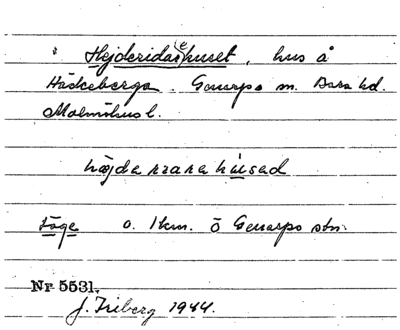 Hejderidar(e)huset, hus å
Häckeberga. Genarps sn. Bara hd.
Malmöhus l.
häjda rzara húsad
Läge o. 1 km. Ö Genarps stn.
Nr 5531.
J. Friberg 1944.